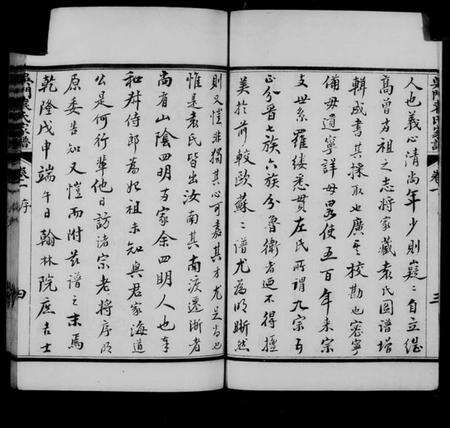 人也義心清尚年少則嶷嶷自立繼
高曾考祖之志將家藏袁氏圖譜增
輯成書其採取也廣其校勘也密寧
備毋遺寧詳毋畧使五百年來宗
支世系羅縷悉貫左氏所謂九宗五
正分晉七族六族分魯衛者迺不得擅
美於前較歐蘇二譜尤為明晰然
則又愷非獨其心可嘉其才尤足尚也
惟是袁氏皆出汝南其南渡遷浙者
尚有山陰四明兩家余四明人也奉
和叔侍郎為始祖未知與君家海道
公是何行輩他日訪諸宗老將序明
原委告知又愷而附茲譜之末焉
乾隆戊申端午日翰林院庶吉士
吳門袁氏家譜
卷一
三
吳門袁氏家譜
卷一 序
四